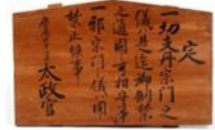 定
一切支丹宗門之
儀ハ是迄御制禁
之通固可相守事
一邪宗門之儀固
禁止候事
太政官